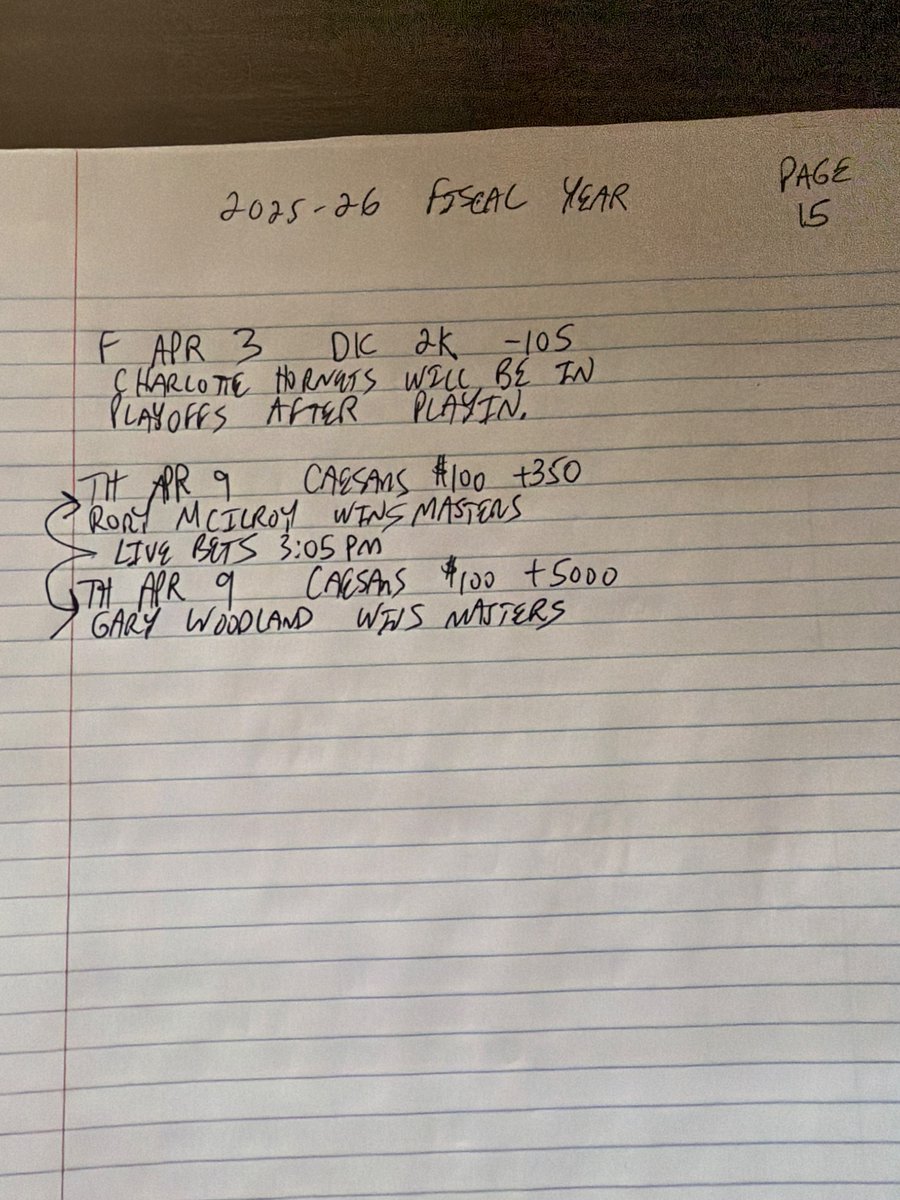 2025-26 FISCAL YEAR
PAGE
15
F APR 3 DIC 2K -105
CHARLOTTE HORNETS WILL BE IN
PLAYOFFS AFTER PLAYIN.
TH APR 9 CAESARS $100 +350
RORY MCILROY WINS MASTERS
LIVE BETS 3:05 PM
TH APR 9 CAESARS $100 +5000
GARY WOODLAND WINS MASTERS